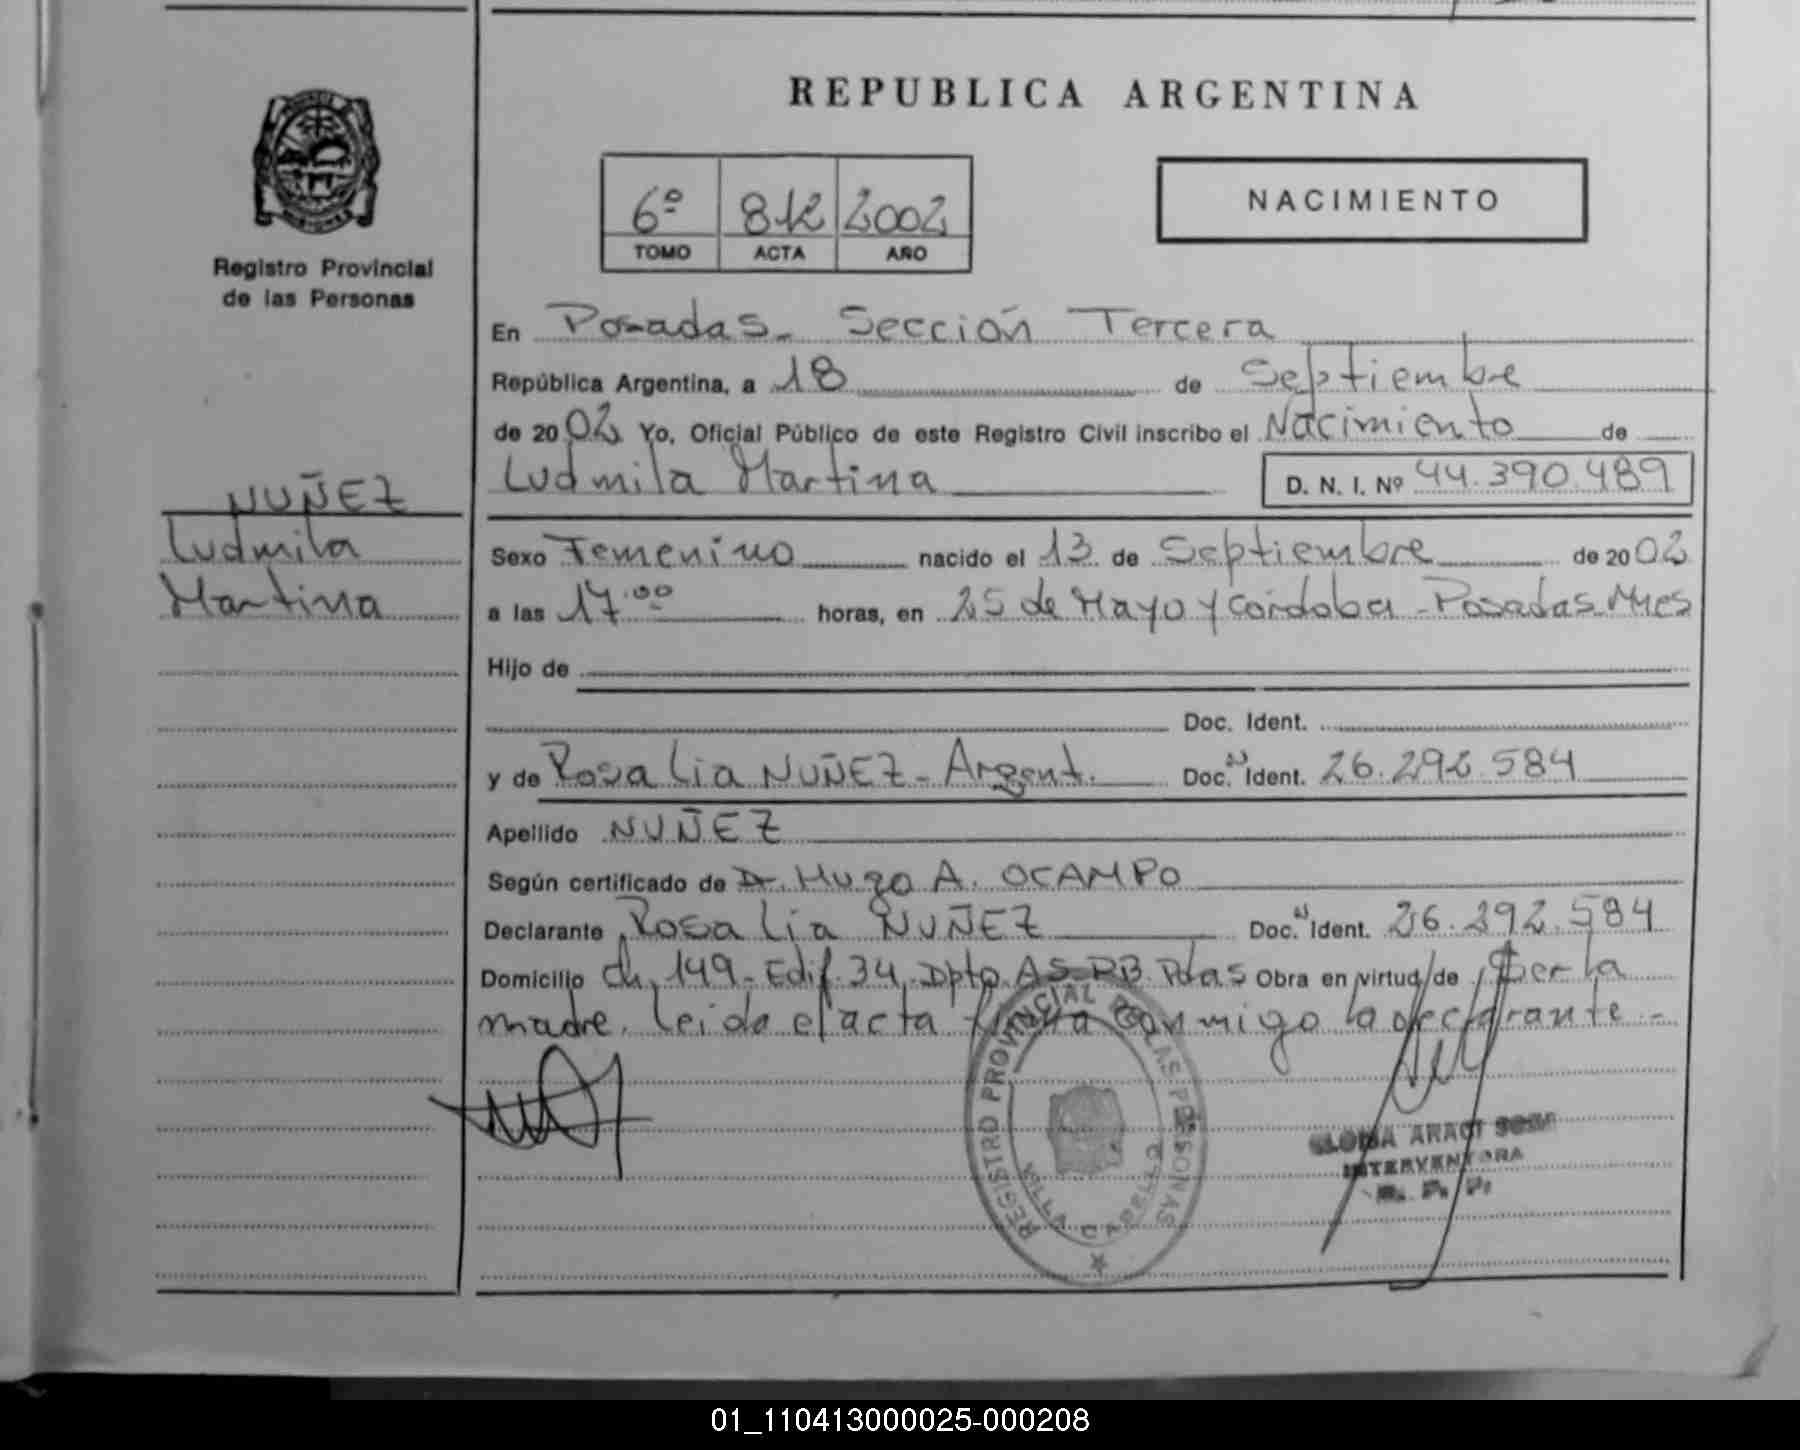 REPUBLICA ARGENTINA
6º 812 2002
TOMO ACTA AÑO
NACIMIENTO
Registro Provincial
de las Personas
NUÑEZ
Ludmila
Martina
En Posadas - Sección Tercera
República Argentina, a 18 de Septiembre
de 2002 Yo, Oficial Público de este Registro Civil inscribo el Nacimiento de
Ludmila Martina D. N. I. Nº 44.390.489
Sexo Femenino nacido el 13 de Septiembre de 2002
a las 17.00 horas, en 25 de Mayo y Córdoba - Posadas Mnes
Hijo de
Doc. Ident.
y de Rosalia NUÑEZ - Argent. Doc. N Ident. 26.292.584
Apellido NUÑEZ
Según certificado de Dr. Hugo A. OCAMPO
Declarante Rosalia NUÑEZ Doc. N Ident. 26.292.584
Domicilio Ch. 149 - Edif. 34 Dpto. Pdas Obra en virtud de Ser la
madre. Leida el acta firma conmigo la declarante.-
REGISTRO PROVINCIAL DE LAS PERSONAS
VILLA CABELLO
ARACI
INTERVENTORA
R. P. P.
01_110413000025-000208